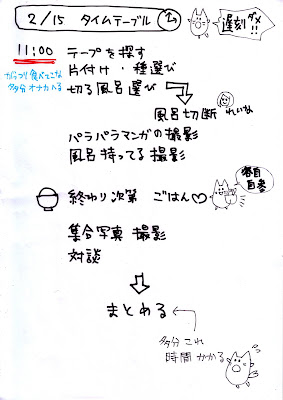 2/15 タイムテーブル
遅刻ダメ!!
11:00
がっつり食べてこな
多分オナカへる
テープを探す
片付け・種選び
切る風呂選び
風呂切断 れいな
パラパラマンガの撮影
風呂持ってる撮影
終わり次第 ごはん♡
各自
持参
集合写真 撮影
対談
まとめる
多分これ
時間かかる